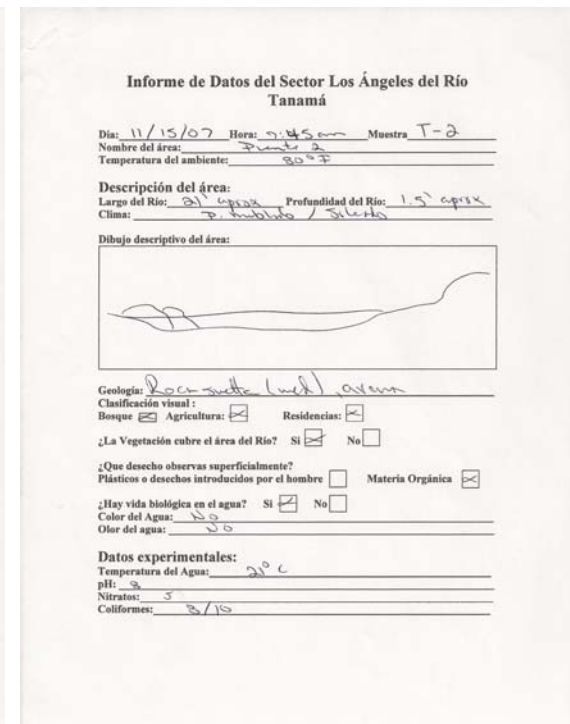 Informe de Datos del Sector Los Ángeles del Río
Tanamá
Día: 11/15/07 Hora: 7:45am Muestra T-2
Nombre del área: Puente 2
Temperatura del ambiente: 80°F
Descripción del área:
Largo del Río: 21' aprox Profundidad del Río: 1.5' aprox
Clima: P. nublado / Soleado
Dibujo descriptivo del área:
Geología: Roca suelta (med), arena
Clasificación visual :
Bosque Agricultura: Residencias:
¿La Vegetación cubre el área del Río? Si No
¿Que desecho observas superficialmente?
Plásticos o desechos introducidos por el hombre Materia Orgánica
¿Hay vida biológica en el agua? Si No
Color del Agua: No
Olor del agua: No
Datos experimentales:
Temperatura del Agua: 21° C
pH: 8
Nitratos: 5
Coliformes: 8/10